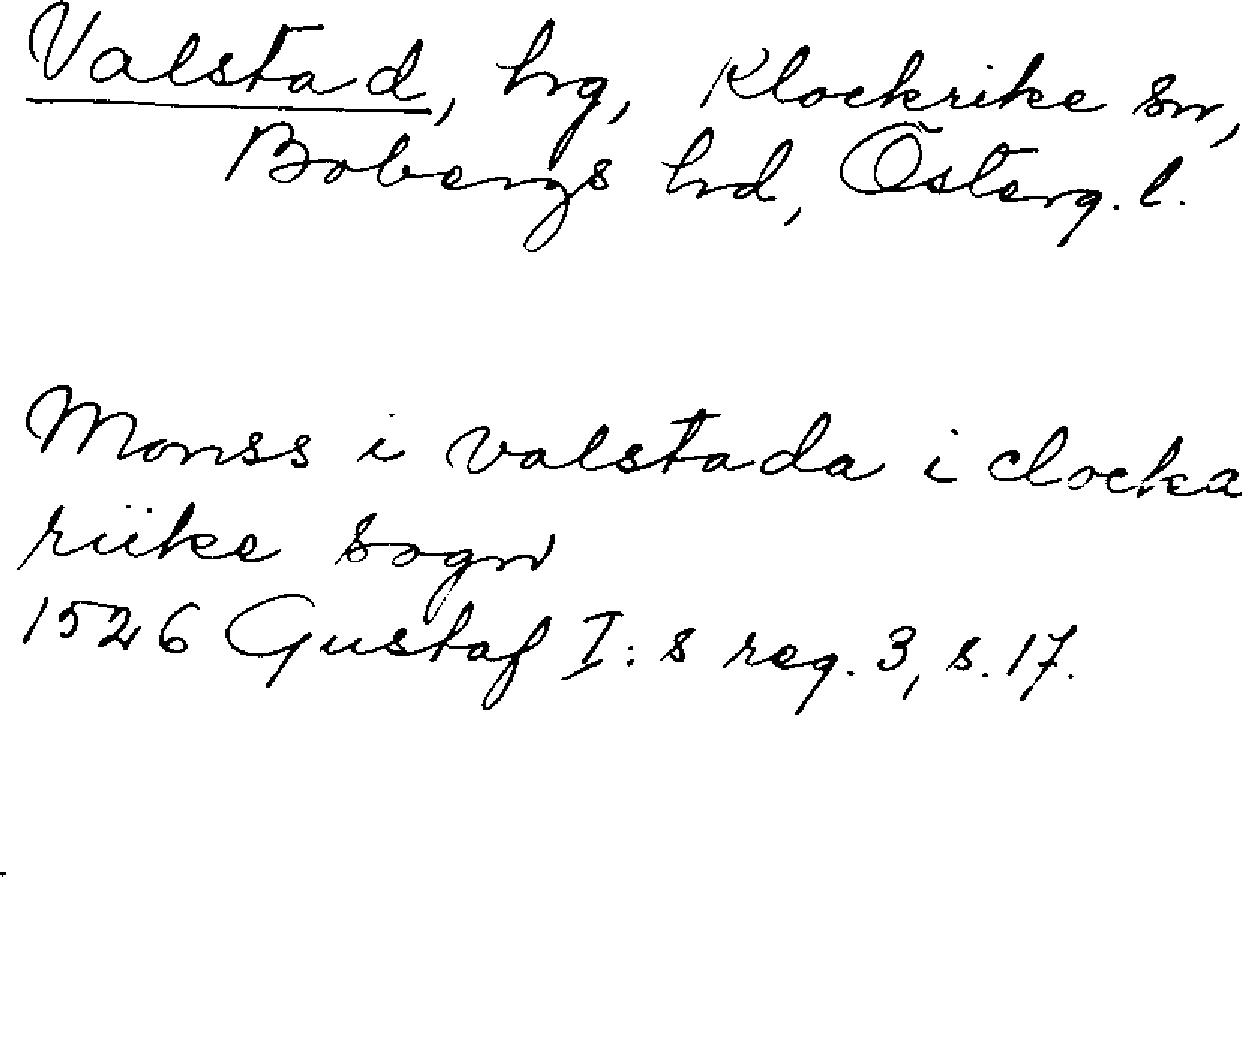 Valstad, hrg, Klockrike sn,
Bobergs hd, Österg. l.
Monss i valstada i clocka
riike sogn
1526 Gustaf I:s reg. 3, s. 17.